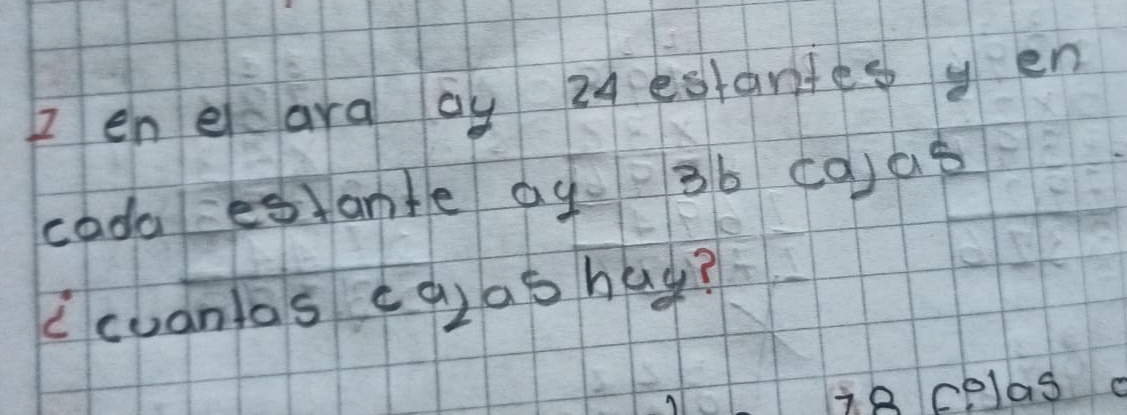 1 en el ara ay 24 estantes y en
cada estante ay 36 cajas
¿cuantas cajas hay?
78